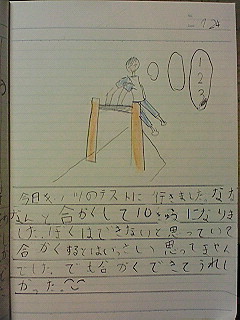 1
2
3
今日スノツのテストに行きました。なな
なんと合かくして10きゅうになりま
した。ぼくはできないと思っていて
合かくするとはいっさい思ってません
でした。でも合かくできてうれし
かった。